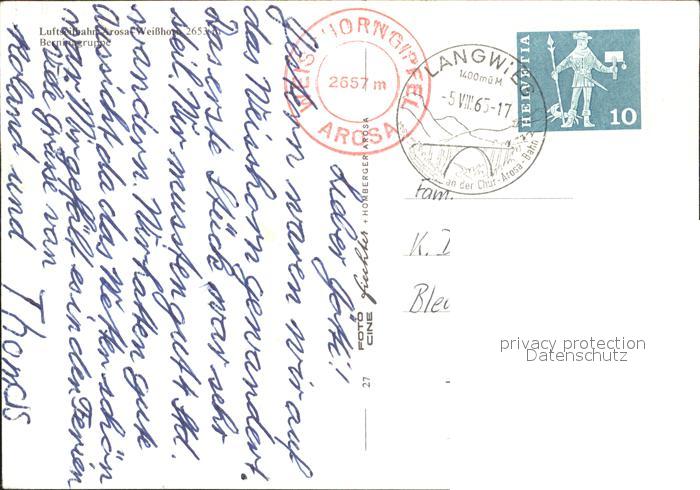 Luftseilbahn Arosa-Weißhorn 2653 m
Berninagruppe
WEISSHORNGIPFEL
2657 m
AROSA
LANGWIES
1400 m ü M
-5.VIII.65-17
an der Chur-Arosa-Bahn
HELVETIA
10
Lieber Götti!
Gestern waren wir auf
das Weisshorn gewandert.
Das erste Stück war sehr
steil. Wir mussten gut 4 Std.
wandern. Wir hatten gute
Aussicht, da das Wetter schön
war. Mir gefällt es in den Ferien
Viele Grüsse von
Roland und Thomas
FOTO
CINE
fuchter + HOMBERGER AROSA
27
Fam.
K.
Blei
privacy protection
Datenschutz